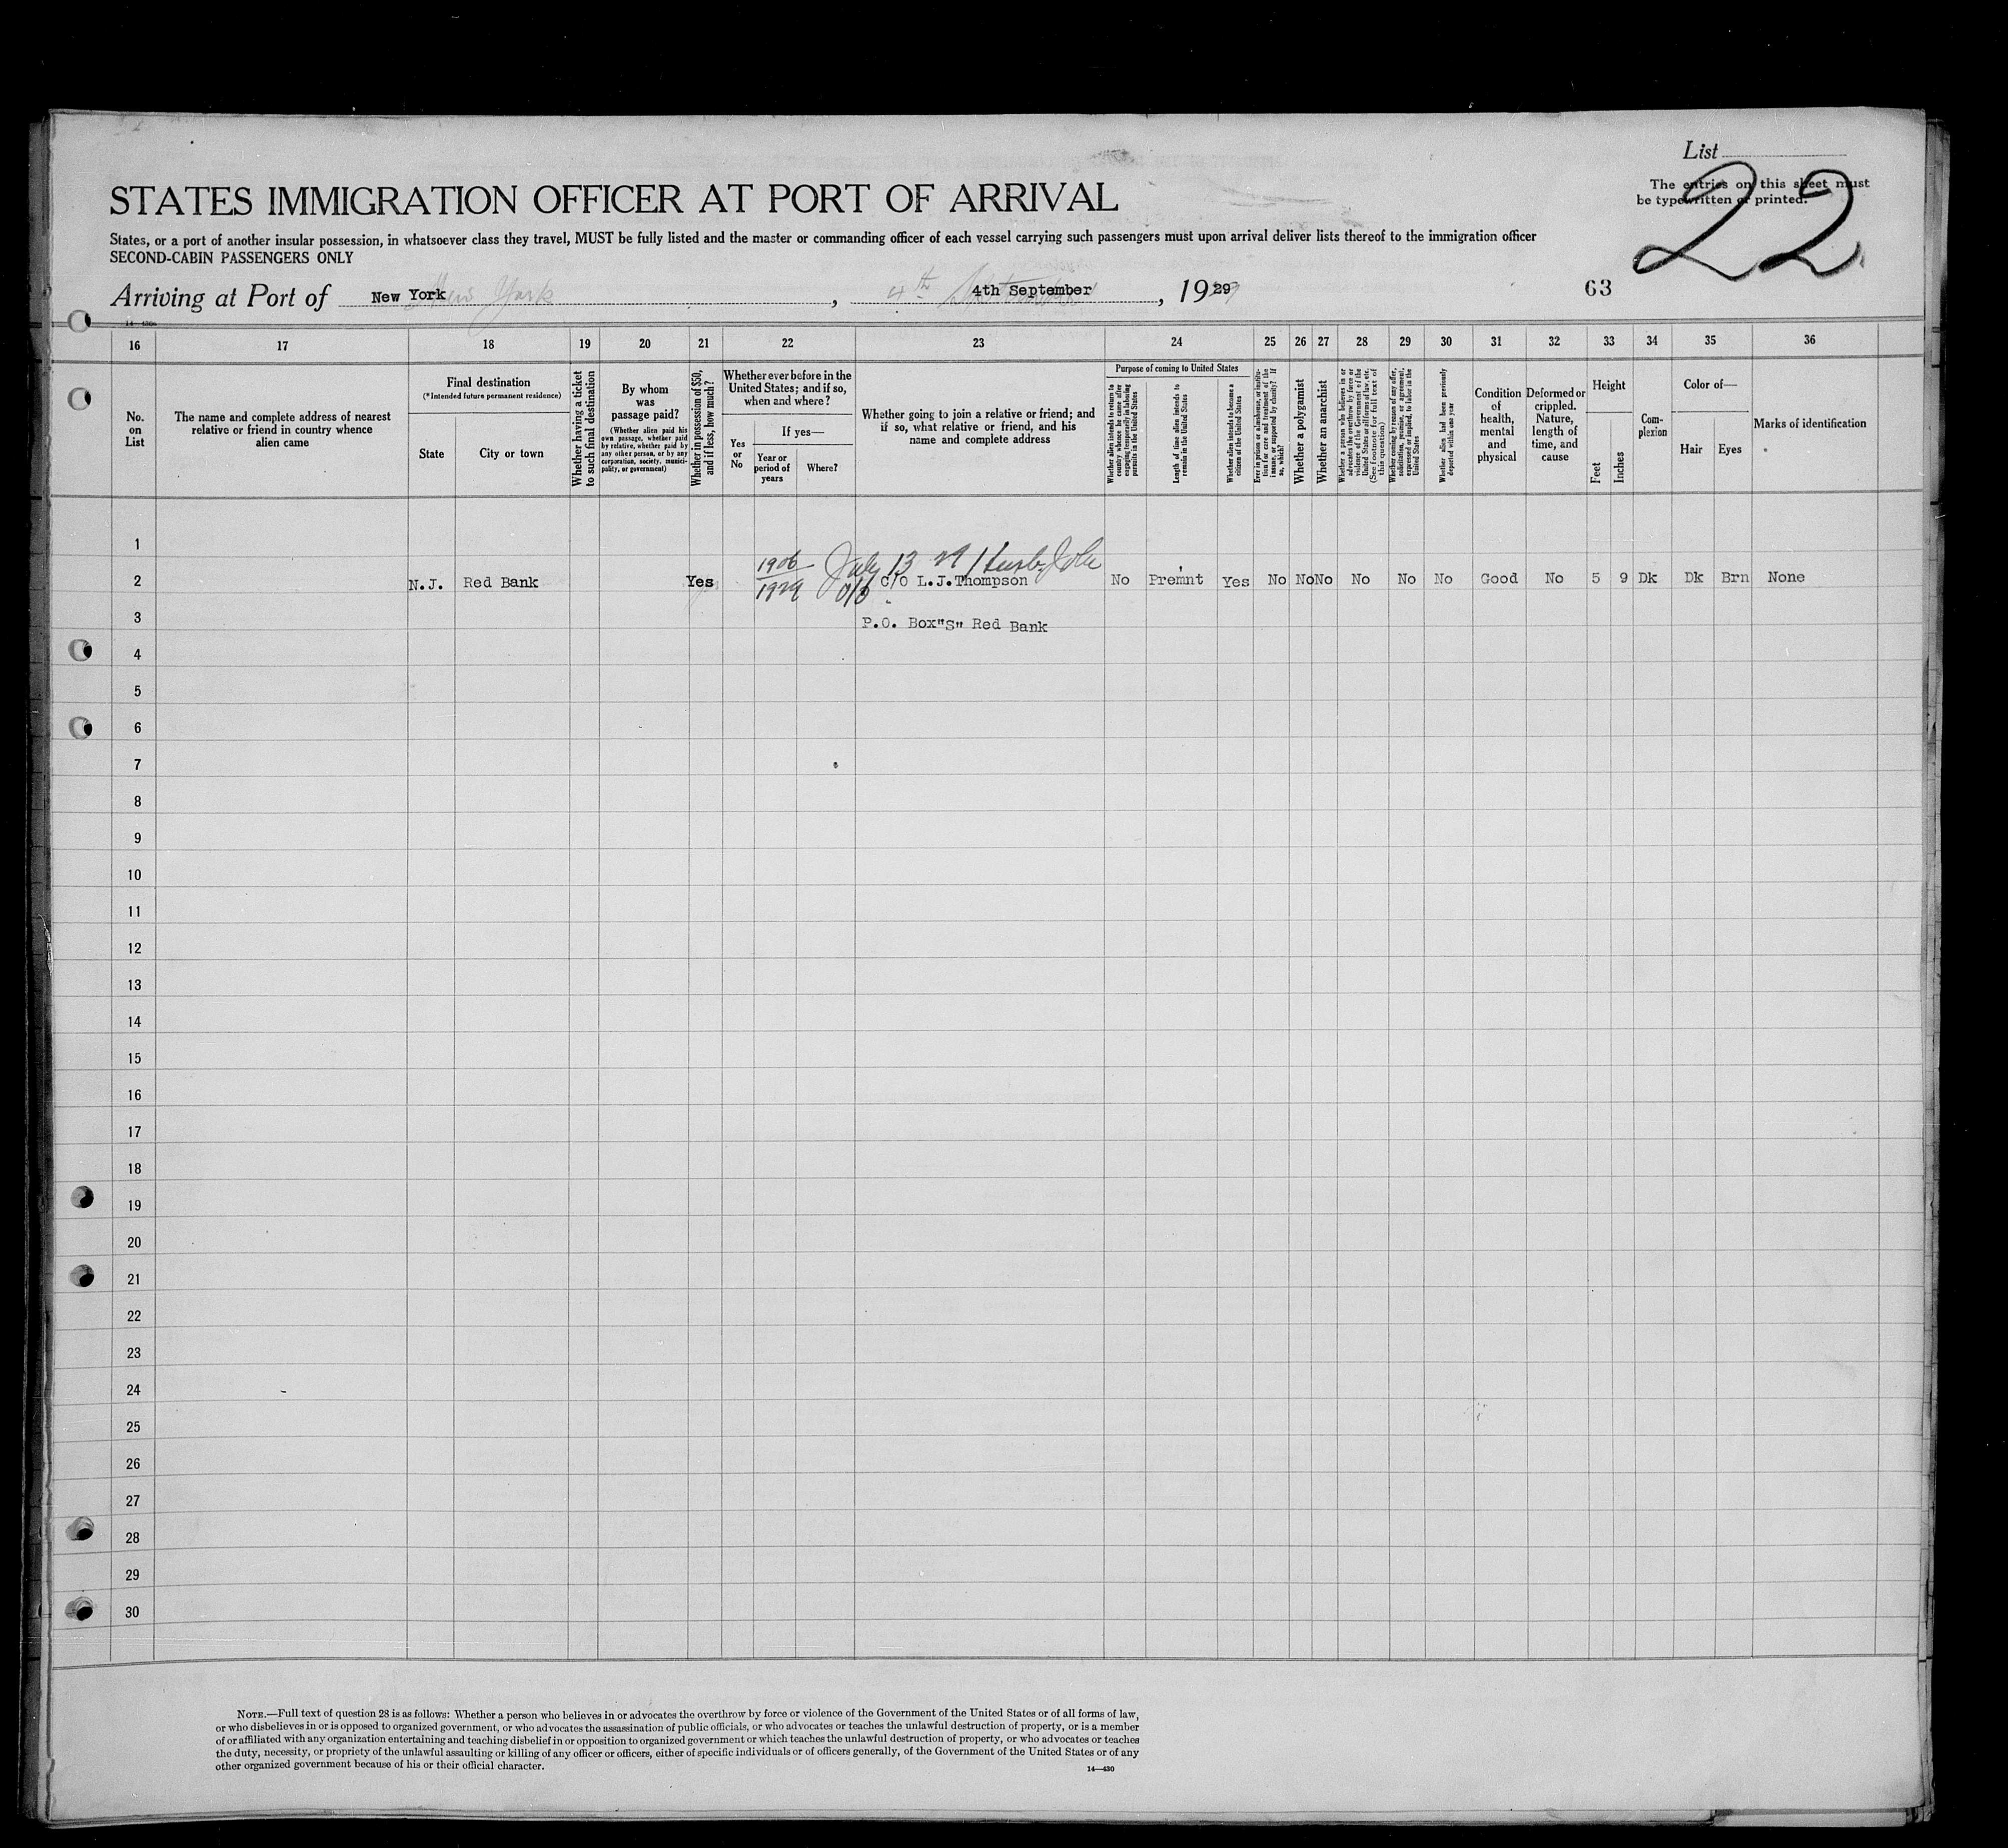 List
22
The entries on this sheet must
be typewritten or printed.
STATES IMMIGRATION OFFICER AT PORT OF ARRIVAL
States, or a port of another insular possession, in whatsoever class they travel, MUST be fully listed and the master or commanding officer of each vessel carrying such passengers must upon arrival deliver lists thereof to the immigration officer
SECOND-CABIN PASSENGERS ONLY
Arriving at Port of New York, 4th September, 1929
63
14—430
16 17 18 19 20 21 22 23 24 25 26 27 28 29 30 31 32 33 34 35 36
No.
on
List
The name and complete address of nearest
relative or friend in country whence
alien came
Final destination
(*Intended future permanent residence)
State
City or town
Whether having a ticket
to such final destination
By whom
was
passage paid?
(Whether alien paid his
own passage, whether paid
by relative, whether paid by
any other person, or by any
corporation, society, munici-
pality, or government)
Whether in possession of $50,
and if less, how much?
Whether ever before in the
United States; and if so,
when and where?
Yes
or
No
If yes—
Year or
period of
years
Where?
Whether going to join a relative or friend; and
if so, what relative or friend, and his
name and complete address
Purpose of coming to United States
Whether alien intends to return to
country whence he came after
engaging temporarily in laboring
pursuits in the United States
Length of time alien intends to
remain in the United States
Whether alien intends to become a
citizen of the United States
Ever in prison or almshouse, or institu-
tion for care and treatment of the
insane, or supported by charity? If
so, which?
Whether a polygamist
Whether an anarchist
Whether a person who believes in or
advocates the overthrow by force or
violence of the Government of the
United States or all forms of law, etc.
(See footnote for full text of
this question)
Whether coming by reason of any offer,
solicitation, promise, or agreement,
expressed or implied, to labor in the
United States
Whether alien had been previously
deported within one year
Condition
of
health,
mental
and
physical
Deformed or
crippled.
Nature,
length of
time, and
cause
Height
Feet
Inches
Com-
plexion
Color of—
Hair
Eyes
Marks of identification
1
1906 July 13 29
2 N.J. Red Bank Yes C/O L.J.Thompson No Premnt Yes No No No No No No Good No 5 9 Dk Dk Brn None
1929
3 P.O. Box"S" Red Bank
4
5
6
7
8
9
10
11
12
13
14
15
16
17
18
19
20
21
22
23
24
25
26
27
28
29
30
NOTE.—Full text of question 28 is as follows: Whether a person who believes in or advocates the overthrow by force or violence of the Government of the United States or of all forms of law,
or who disbelieves in or is opposed to organized government, or who advocates the assassination of public officials, or who advocates or teaches the unlawful destruction of property, or is a member
of or affiliated with any organization entertaining and teaching disbelief in or opposition to organized government or which teaches the unlawful destruction of property, or who advocates or teaches
the duty, necessity, or propriety of the unlawful assaulting or killing of any officer or officers, either of specific individuals or of officers generally, of the Government of the United States or of any
other organized government because of his or their official character.
14—430